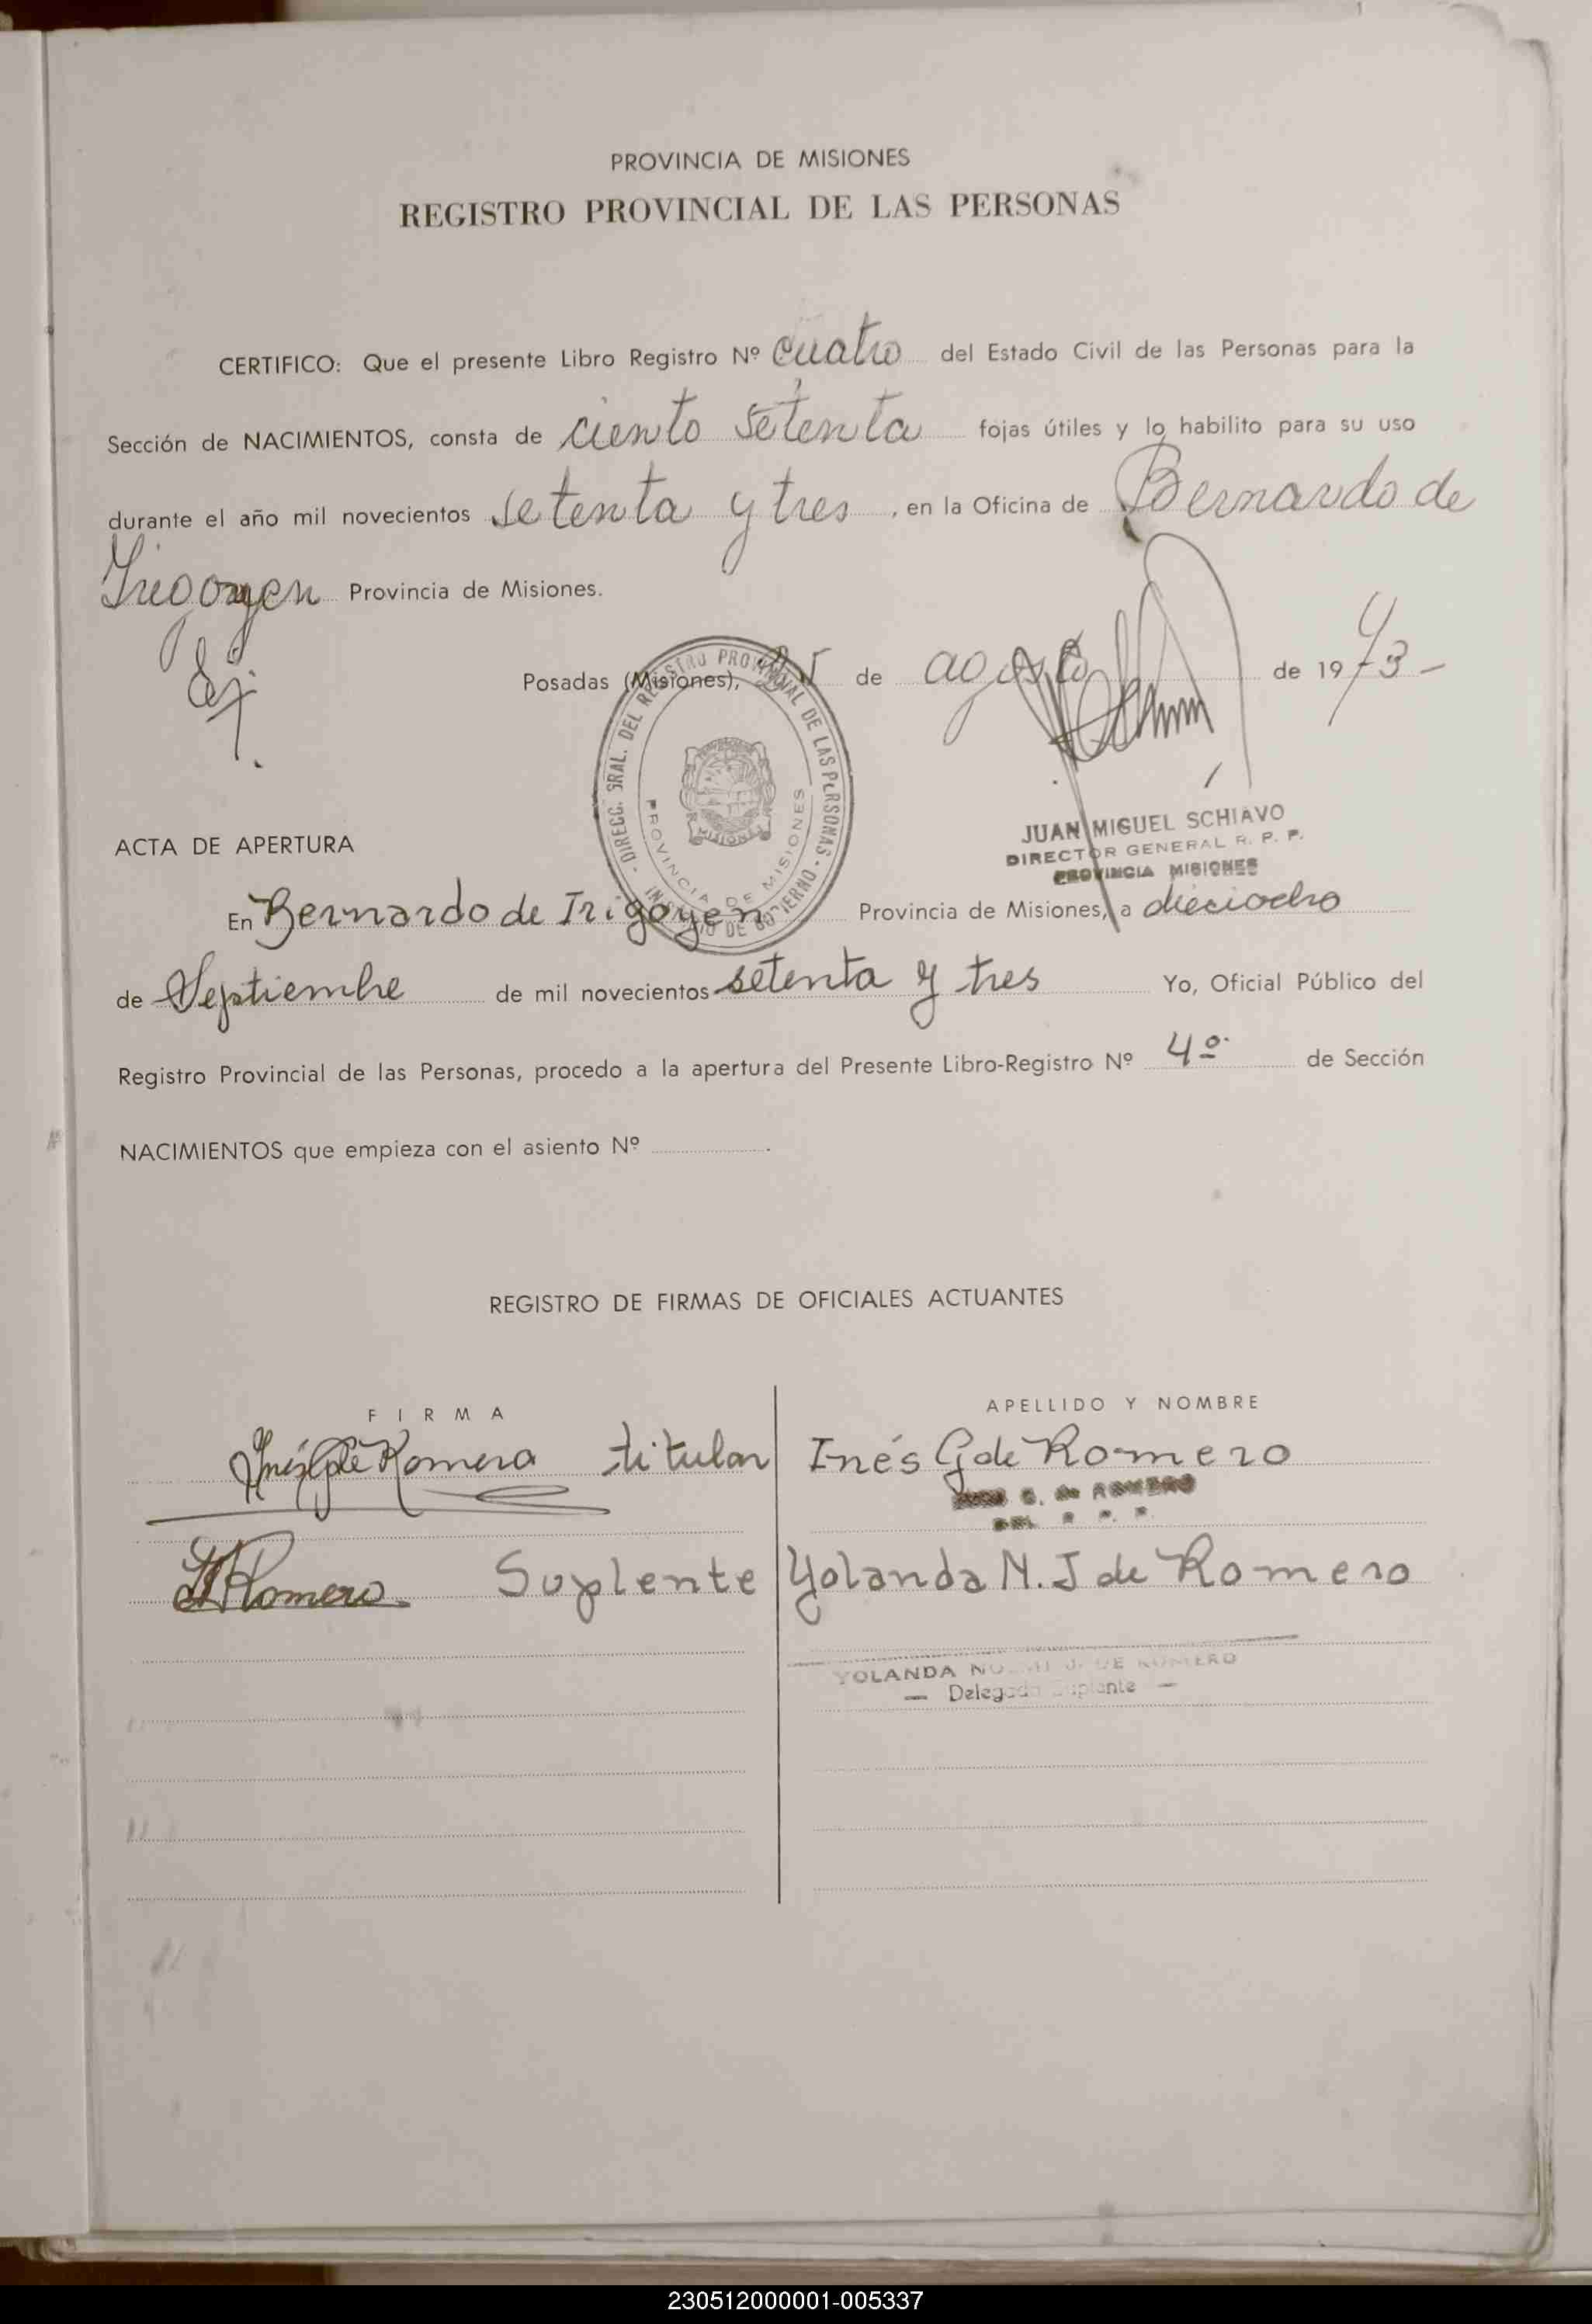 PROVINCIA DE MISIONES
REGISTRO PROVINCIAL DE LAS PERSONAS
CERTIFICO: Que el presente Libro Registro Nº cuatro del Estado Civil de las Personas para la
Sección de NACIMIENTOS, consta de ciento setenta fojas útiles y lo habilito para su uso
durante el año mil novecientos setenta y tres, en la Oficina de Bernardo de
Irigoyen Provincia de Misiones.
Posadas (Misiones), de agosto de 1973-
DIRECC. GRAL. DEL REGISTRO PROVINCIAL DE LAS PERSONAS - MINISTERIO DE GOBIERNO -
PROVINCIA DE MISIONES
JUAN MIGUEL SCHIAVO
DIRECTOR GENERAL R. P. P.
PROVINCIA MISIONES
ACTA DE APERTURA
En Bernardo de Irigoyen Provincia de Misiones, a dieciocho
de Septiembre de mil novecientos setenta y tres Yo, Oficial Público del
Registro Provincial de las Personas, procedo a la apertura del Presente Libro-Registro Nº 4º de Sección
NACIMIENTOS que empieza con el asiento Nº
REGISTRO DE FIRMAS DE OFICIALES ACTUANTES
FIRMA APELLIDO Y NOMBRE
Inés G de Romero titular Inés G de Romero
G. de ROMERO
Romero Suplente Yolanda N. J de Romero
YOLANDA J. DE ROMERO
— Delegada Suplente —
230512000001-005337